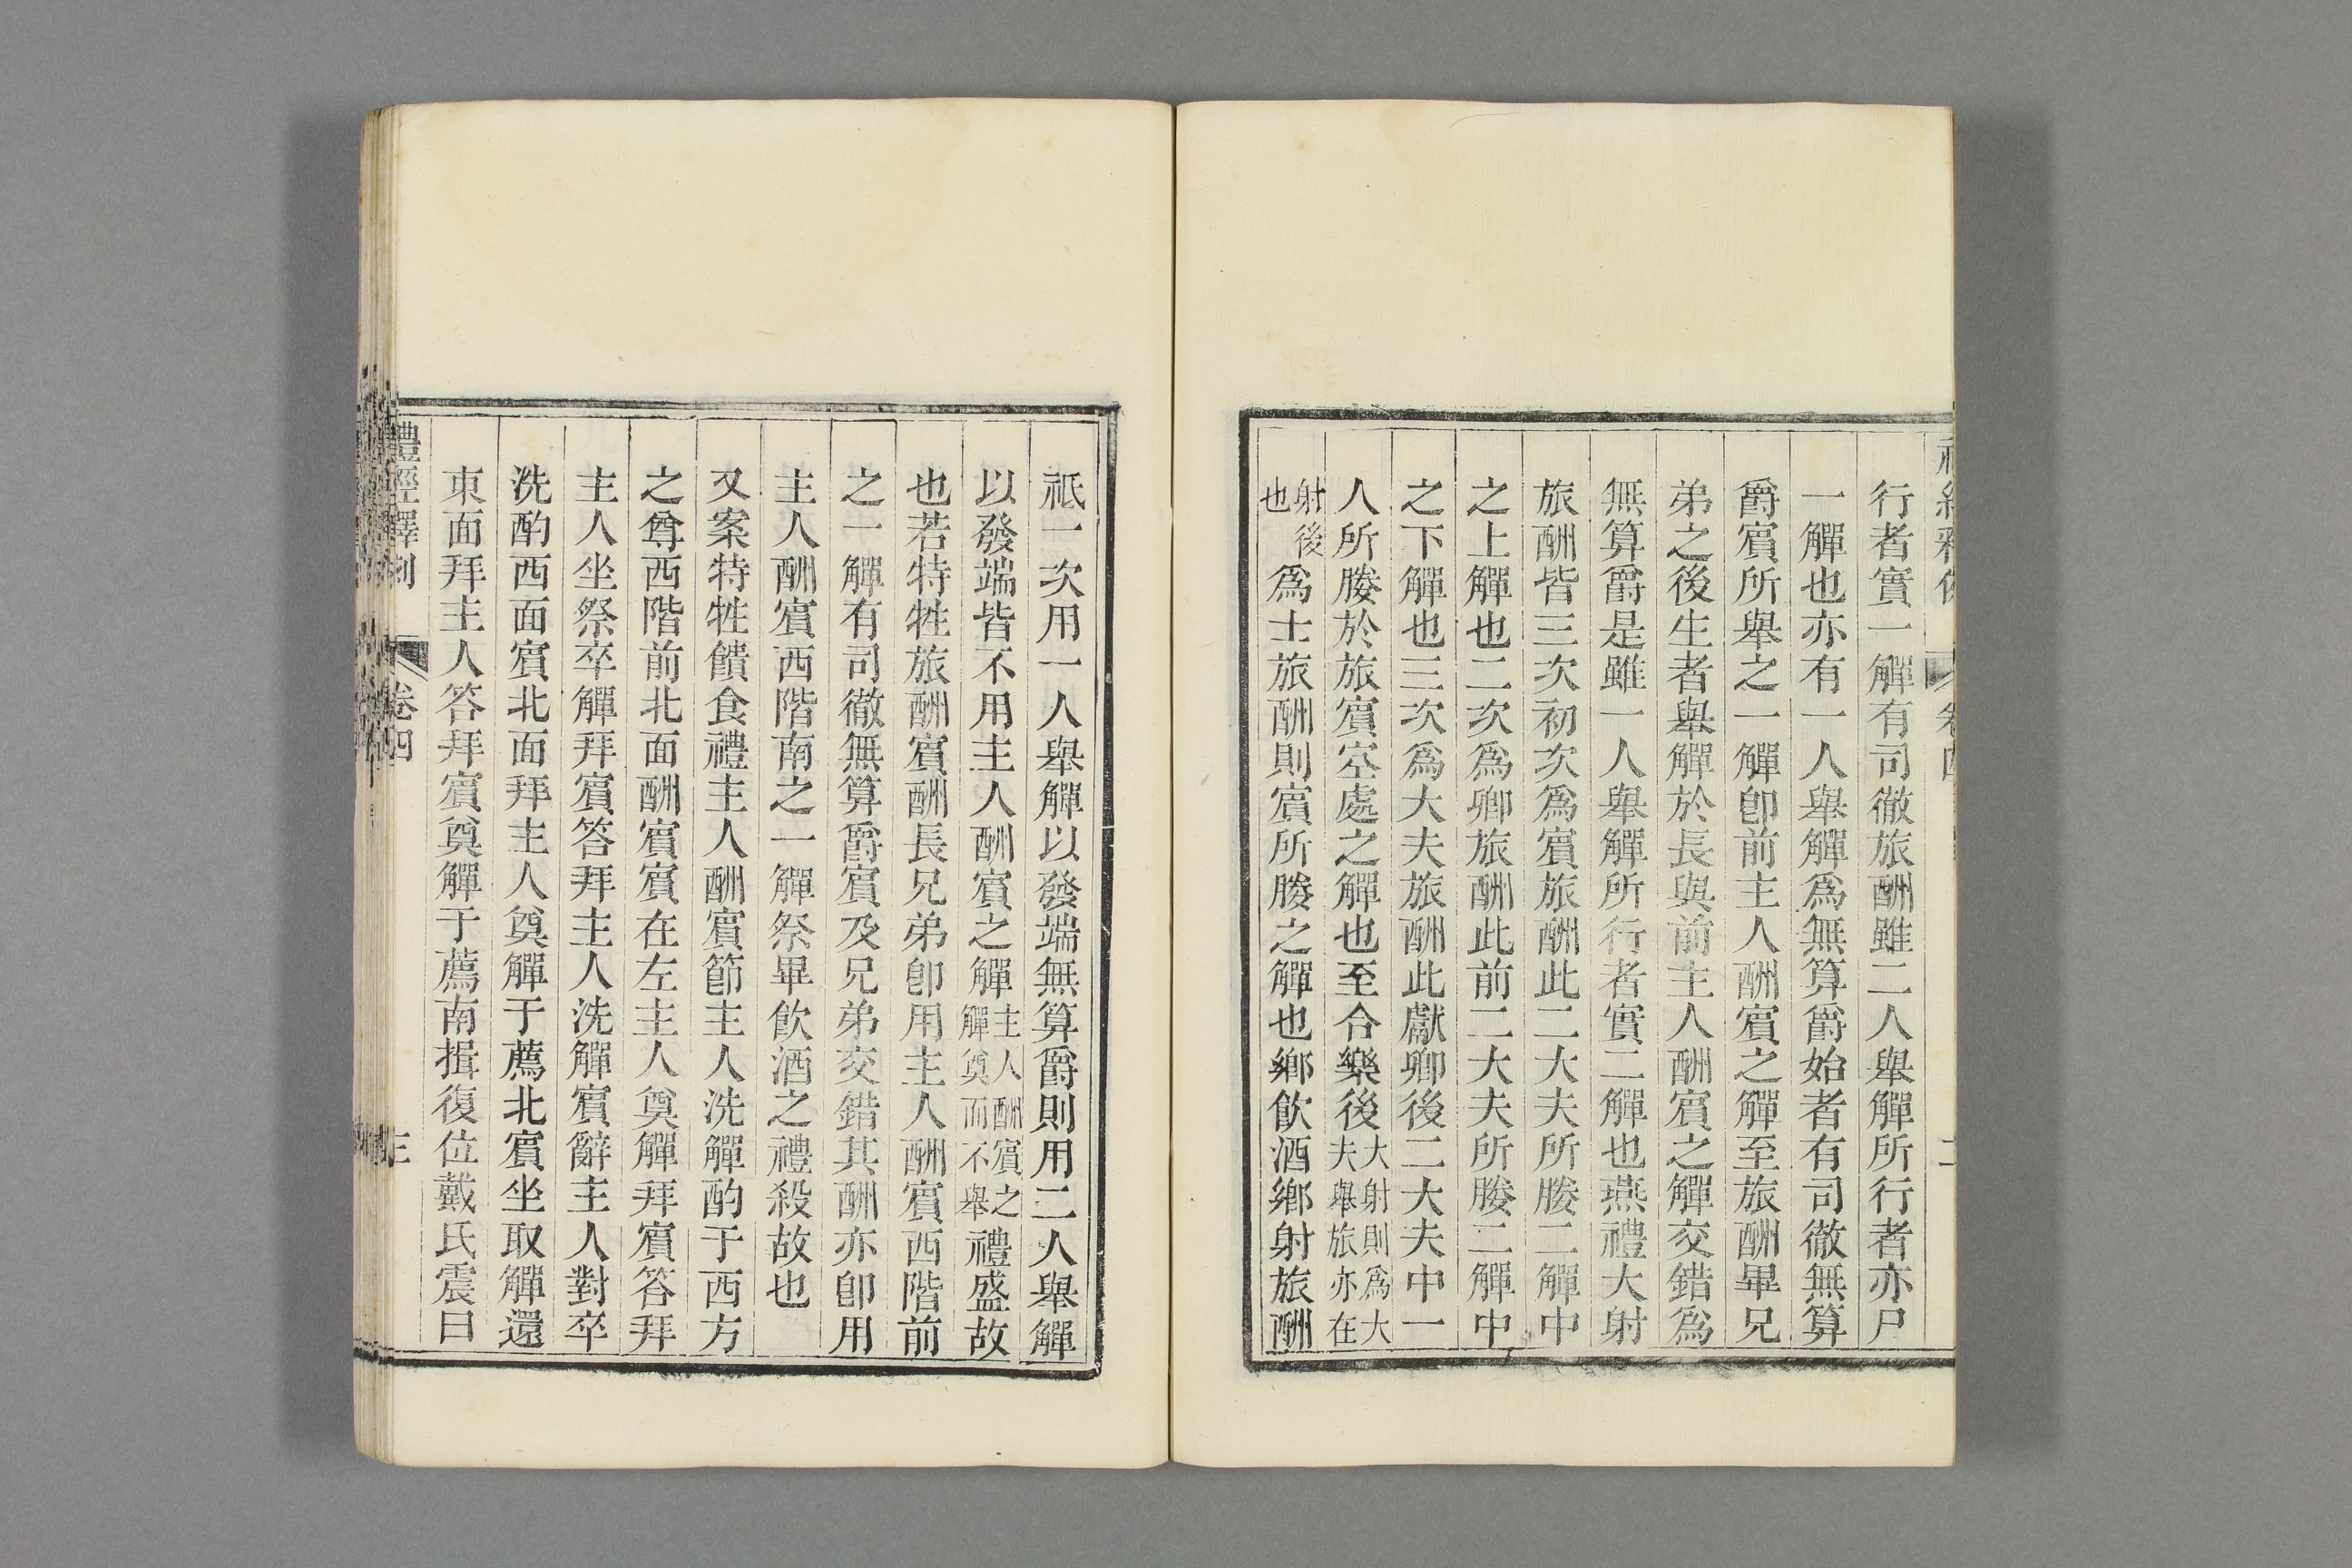 行者實一觶有司徹旅酬雖二人舉觶所行者亦尸
一觶也亦有一人舉觶爲無算爵始者有司徹無算
爵賓所舉之一觶卽前主人酬賓之觶至旅酬畢兄
弟之後生者舉觶於長與前主人酬賓之觶交錯爲
無算爵是雖一人舉觶所行者實二觶也燕禮大射
旅酬皆三次初次爲賓旅酬此二大夫所媵二觶中
之上觶也二次爲卿旅酬此前二大夫所媵二觶中
之下觶也三次爲大夫旅酬此獻卿後二大夫中一
人所媵於旅賓空處之觶也至合樂後大射則爲大夫舉旅亦在
射後也爲士旅酬則賓所媵之觶也鄉飲酒鄉射旅酬
祇一次用一人舉觶以發端無算爵則用二人舉觶
以發端皆不用主人酬賓之觶主人酬賓之觶奠而不舉禮盛故
也若特牲旅酬賓酬長兄弟卽用主人酬賓西階前
之一觶有司徹無算爵賓及兄弟交錯其酬亦卽用
主人酬賓西階南之一觶祭畢飲酒之禮殺故也
又案特牲饋食禮主人酬賓節主人洗觶酌于西方
之尊西階前北面酬賓賓在左主人奠觶拜賓答拜
主人坐祭卒觶拜賓答拜主人洗觶賓辭主人對卒
洗酌西面賓北面拜主人奠觶于薦北賓坐取觶還
東面拜主人答拜賓奠觶于薦南揖復位戴氏震曰
禮經釋例 卷四 三